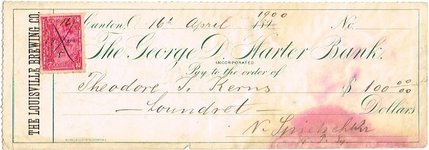 THE LOUISVILLE BREWING CO.
Canton O. 16th April 1900 No.
The George D. Harter Bank.
INCORPORATED
Pay to the order of
Theodore J. Kerns $100.00
Dollars